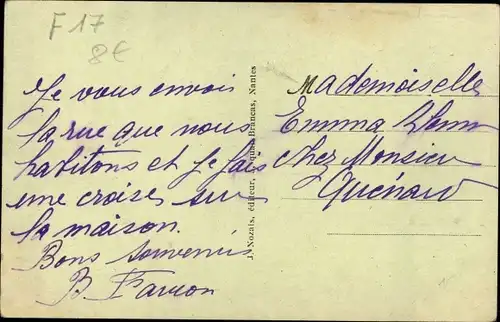 F 17
8€
Je vous envoi
la rue que nous
habitons et je fais
une croise sur
la maison.
Bons souvenirs
B. Farron
J. Nozais, éditeur, Brancas, Nantes
Mademoiselle
Emma
chez Monsieu
Quénard